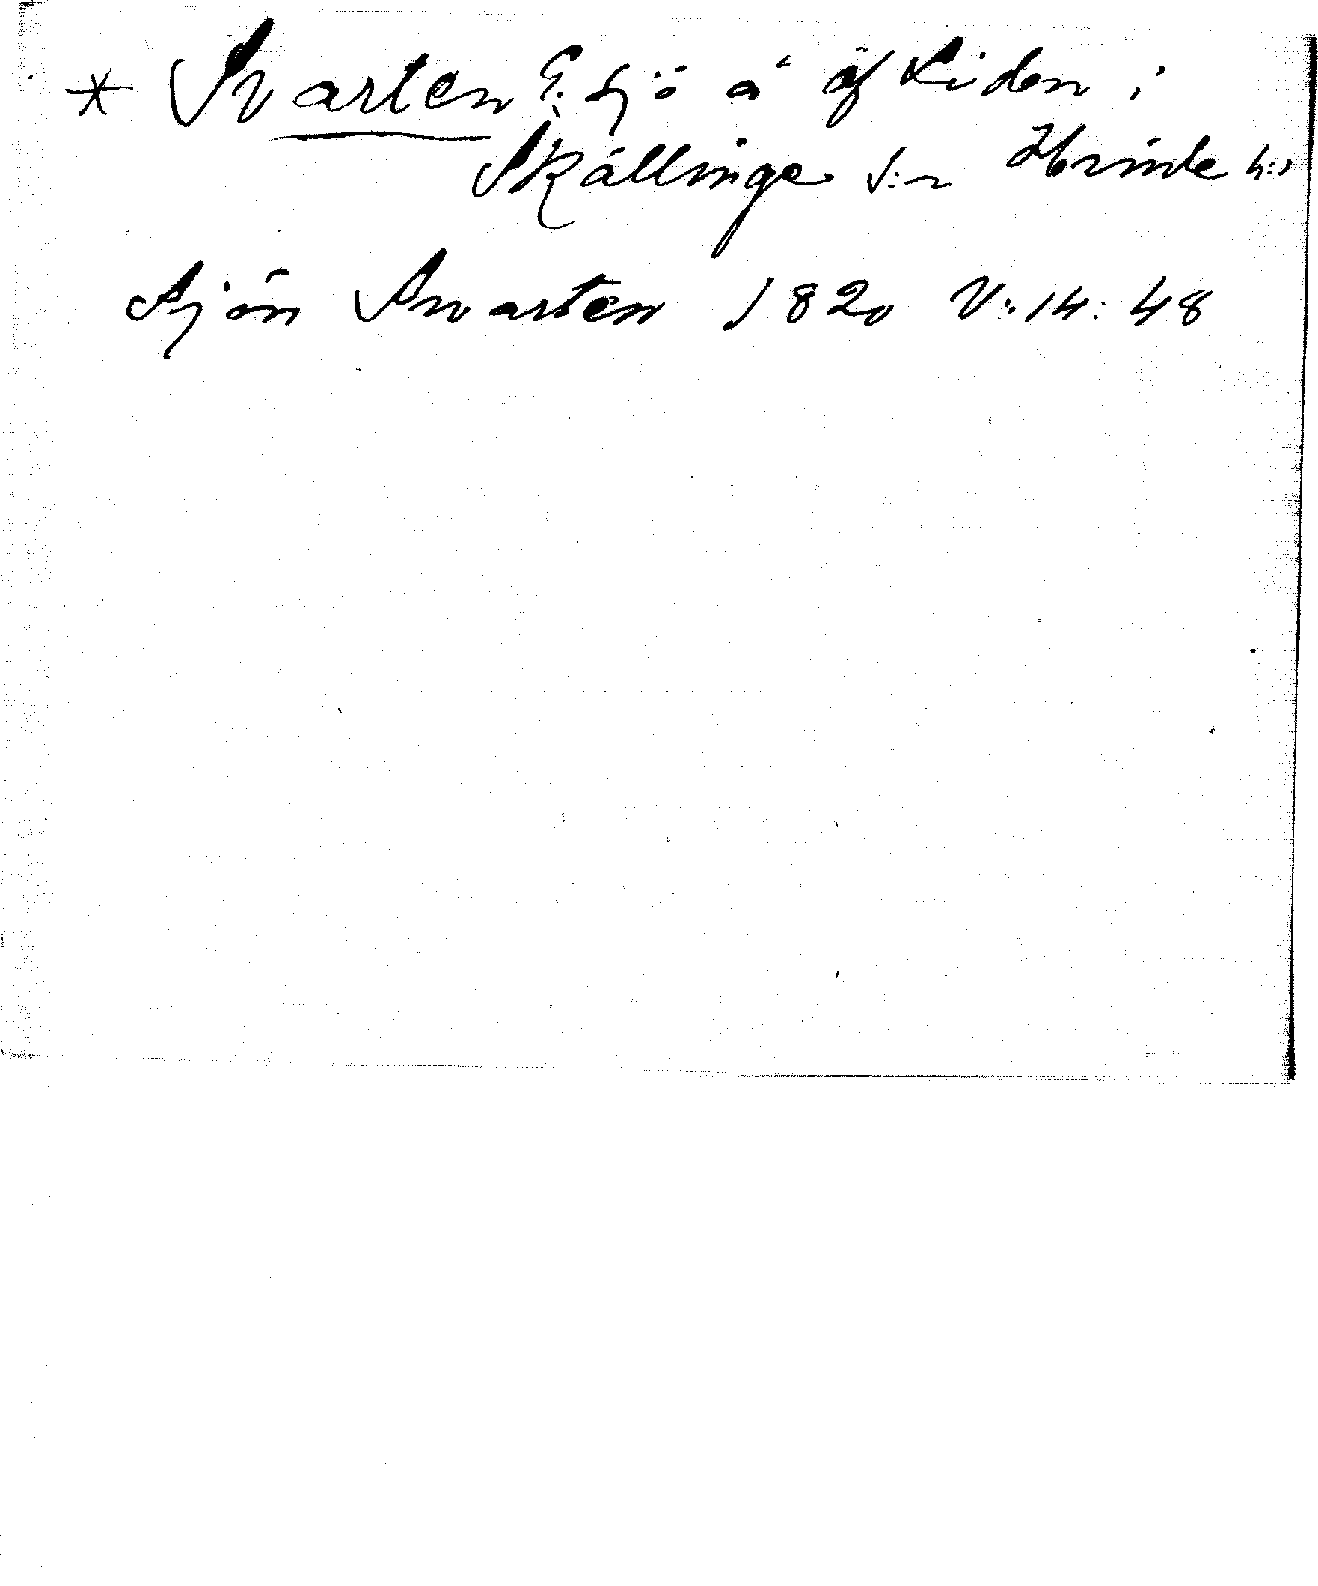 * Svarten E. sjö å öf Liden i
Skällinge s:n Himle h:d
Sjön Swarten 1820 V:14:48